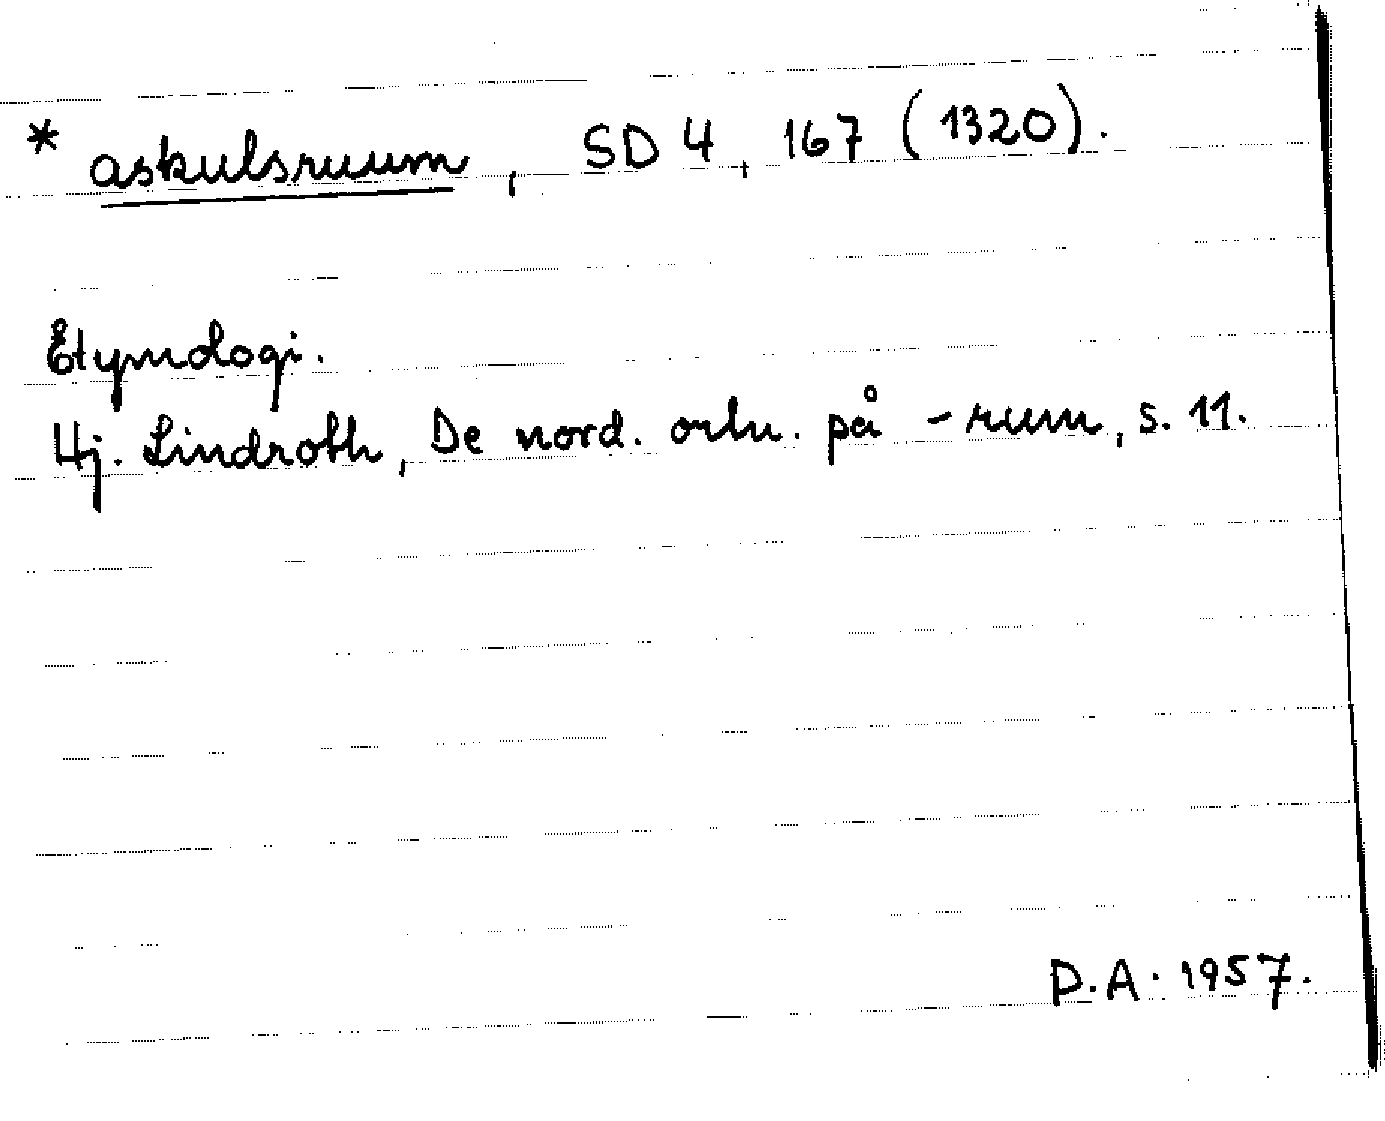 * askulsruum, SD 4, 167 (1320).
Etymologi.
Hj. Lindroth, De nord. ortn. på -rum, s. 11.
D.A. 1957.